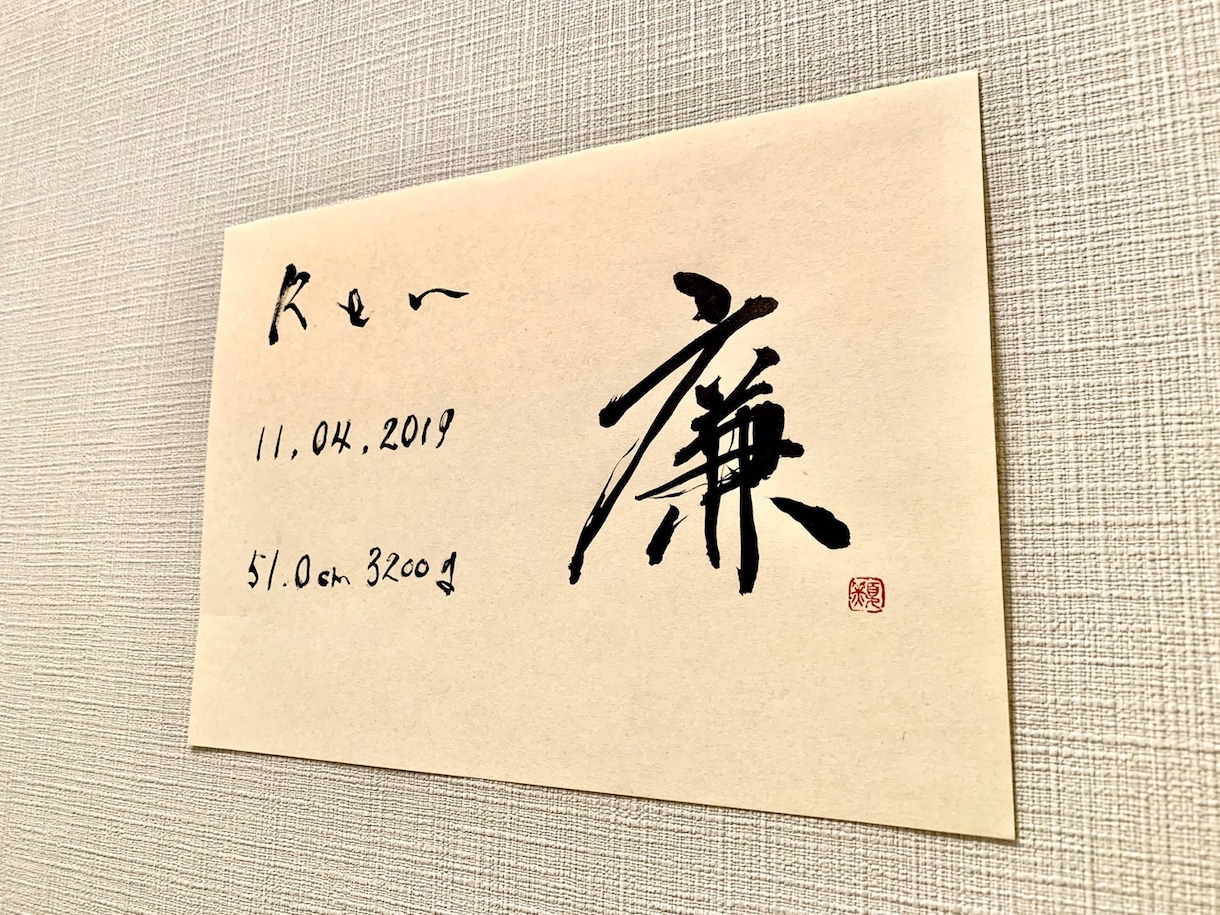 Ken
11.04.2019
51.0cm 3200g
廉